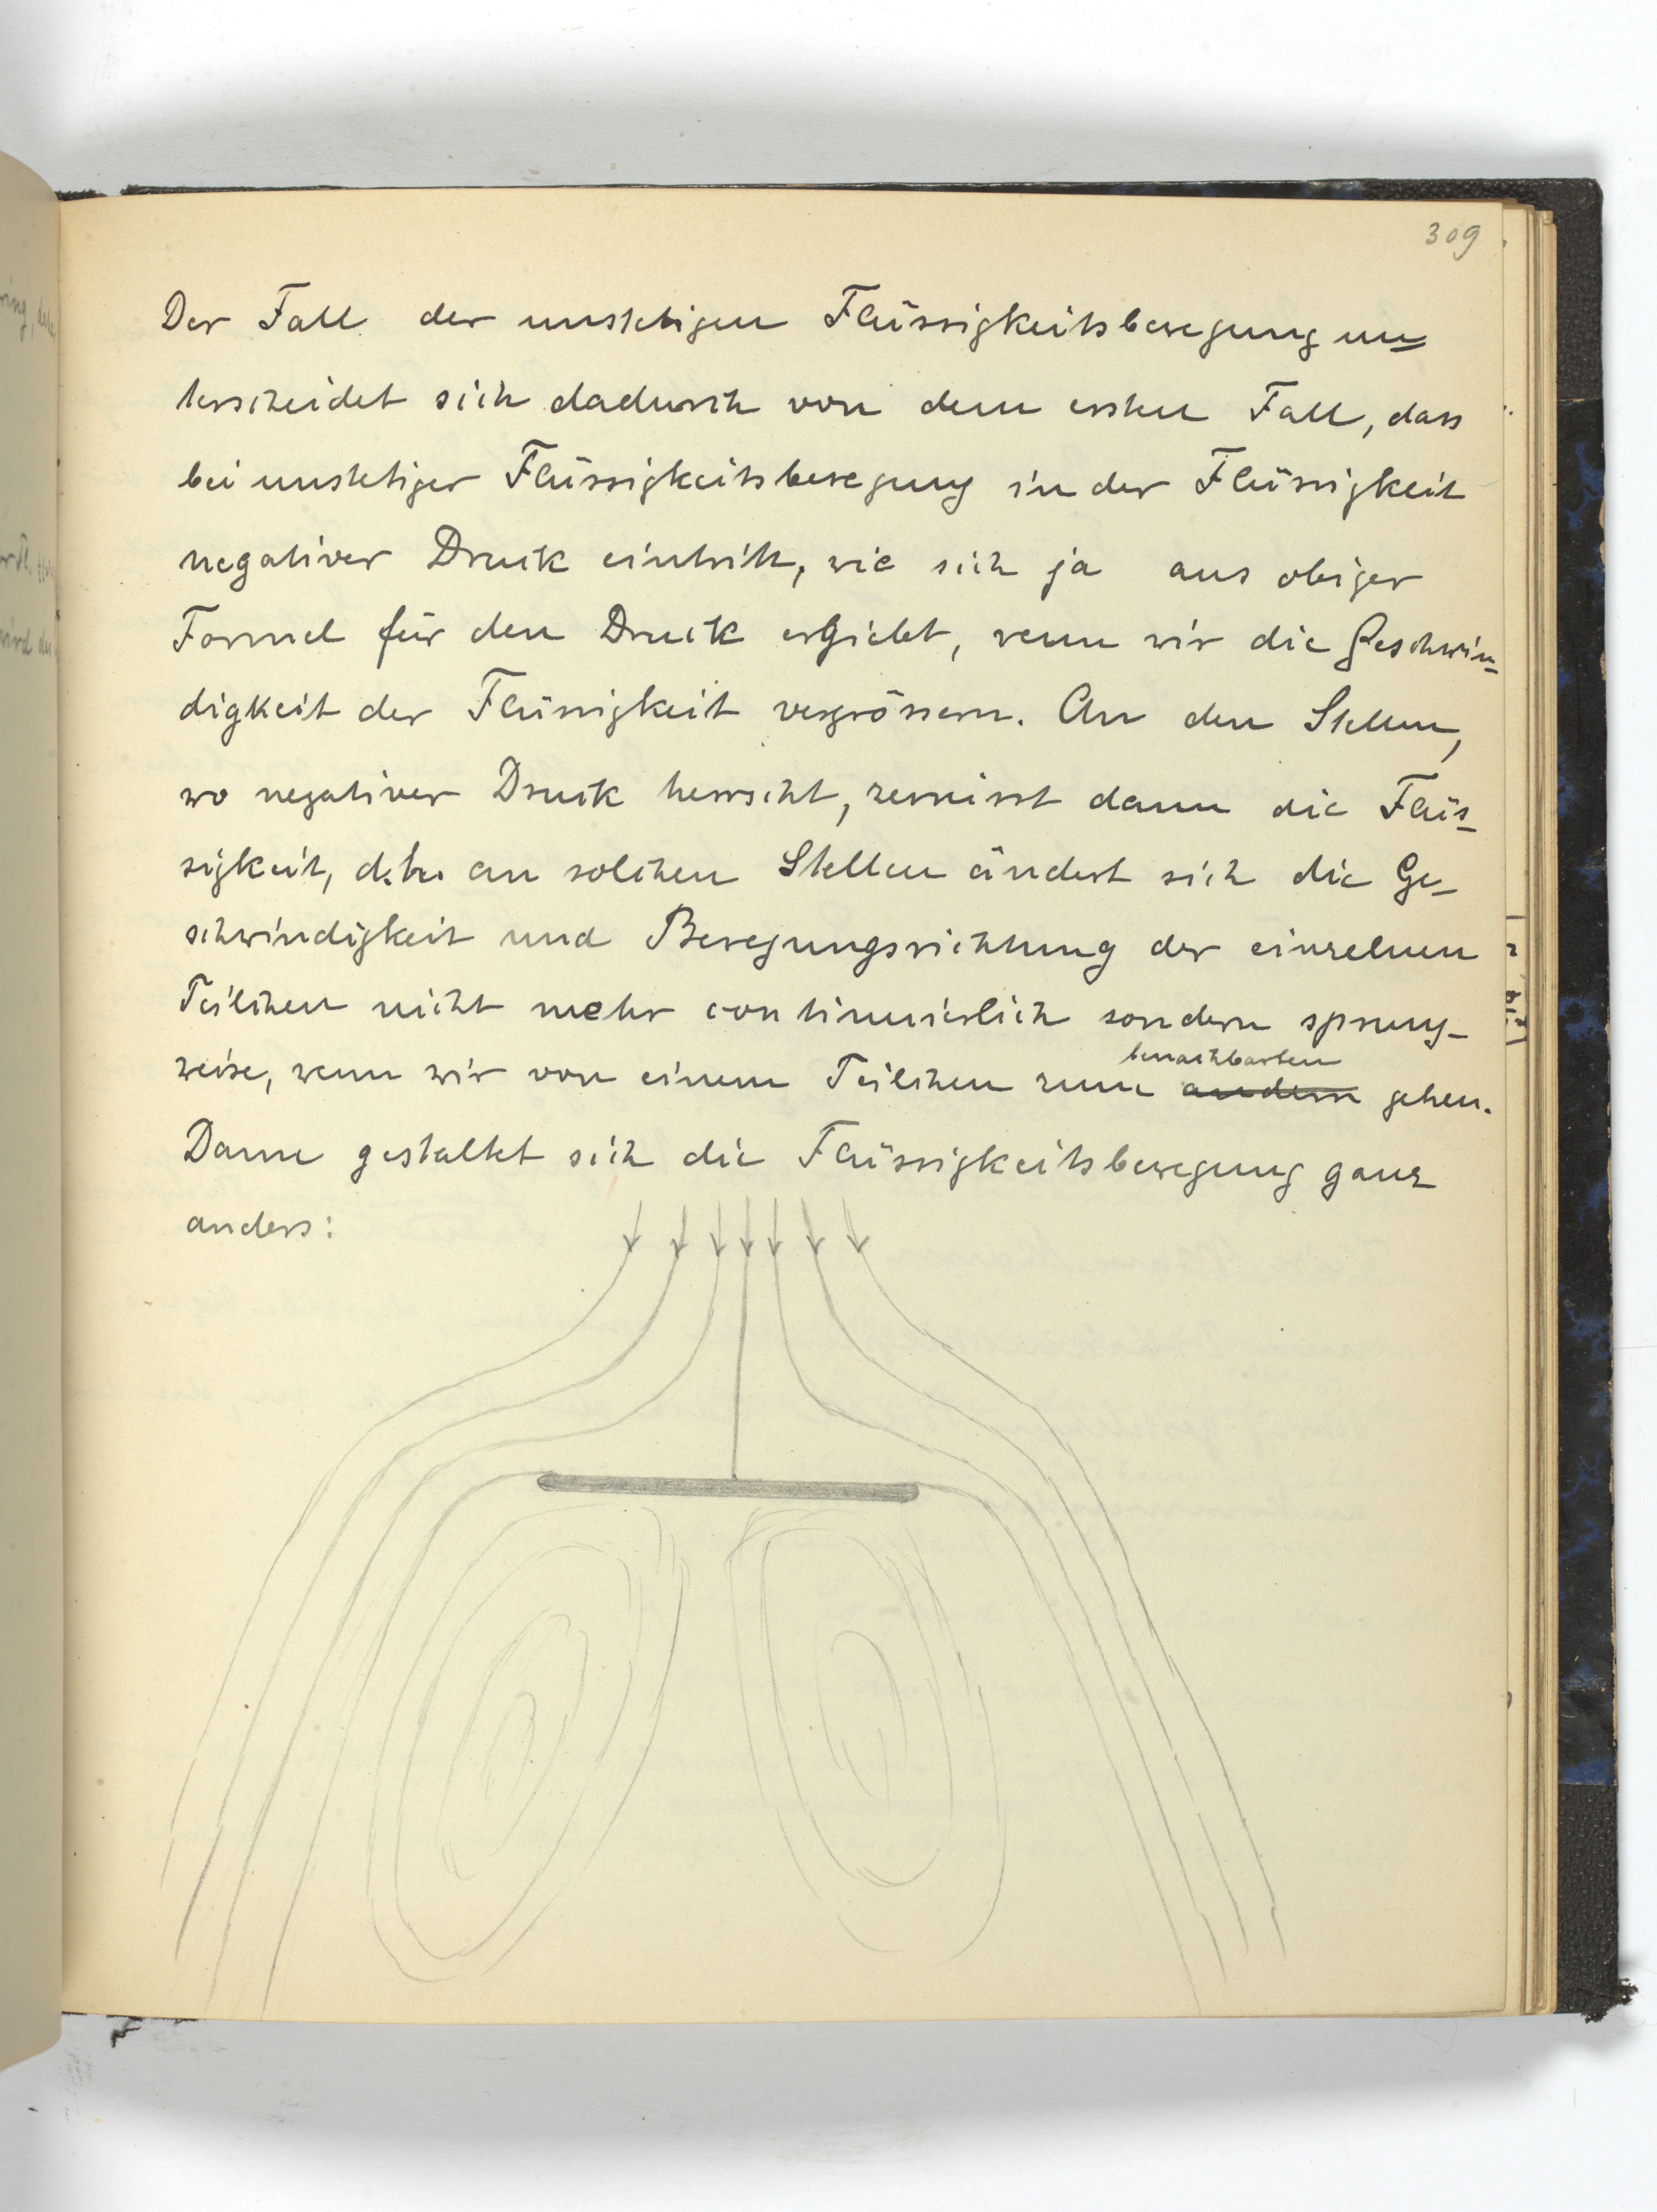 309
Der Fall der unstetigen Flüssigkeitsbewegung un=
terscheidet sich dadurch von dem ersten Fall, dass
bei unstetiger Flüssigkeitsbewegung in der Flüssigkeit
negativer Druck eintritt, wie sich ja aus obiger
Formel für den Druck ergiebt, wenn wir die Geschwin=
digkeit der Flüssigkeit vergrössern. An den Stellen,
wo negativer Druck herrscht, zerreisst dann die Flüs-
sigkeit, d.h. an solchen Stellen ändert sich die Ge-
schwindigkeit und Bewegungsrichtung der einzelnen
Teilchen nicht mehr continuierlich sondern sprung-
benachbarten
weise, wenn wir von einem Teilchen zum andern gehen.
Dann gestaltet sich die Flüssigkeitsbewegung ganz
anders: